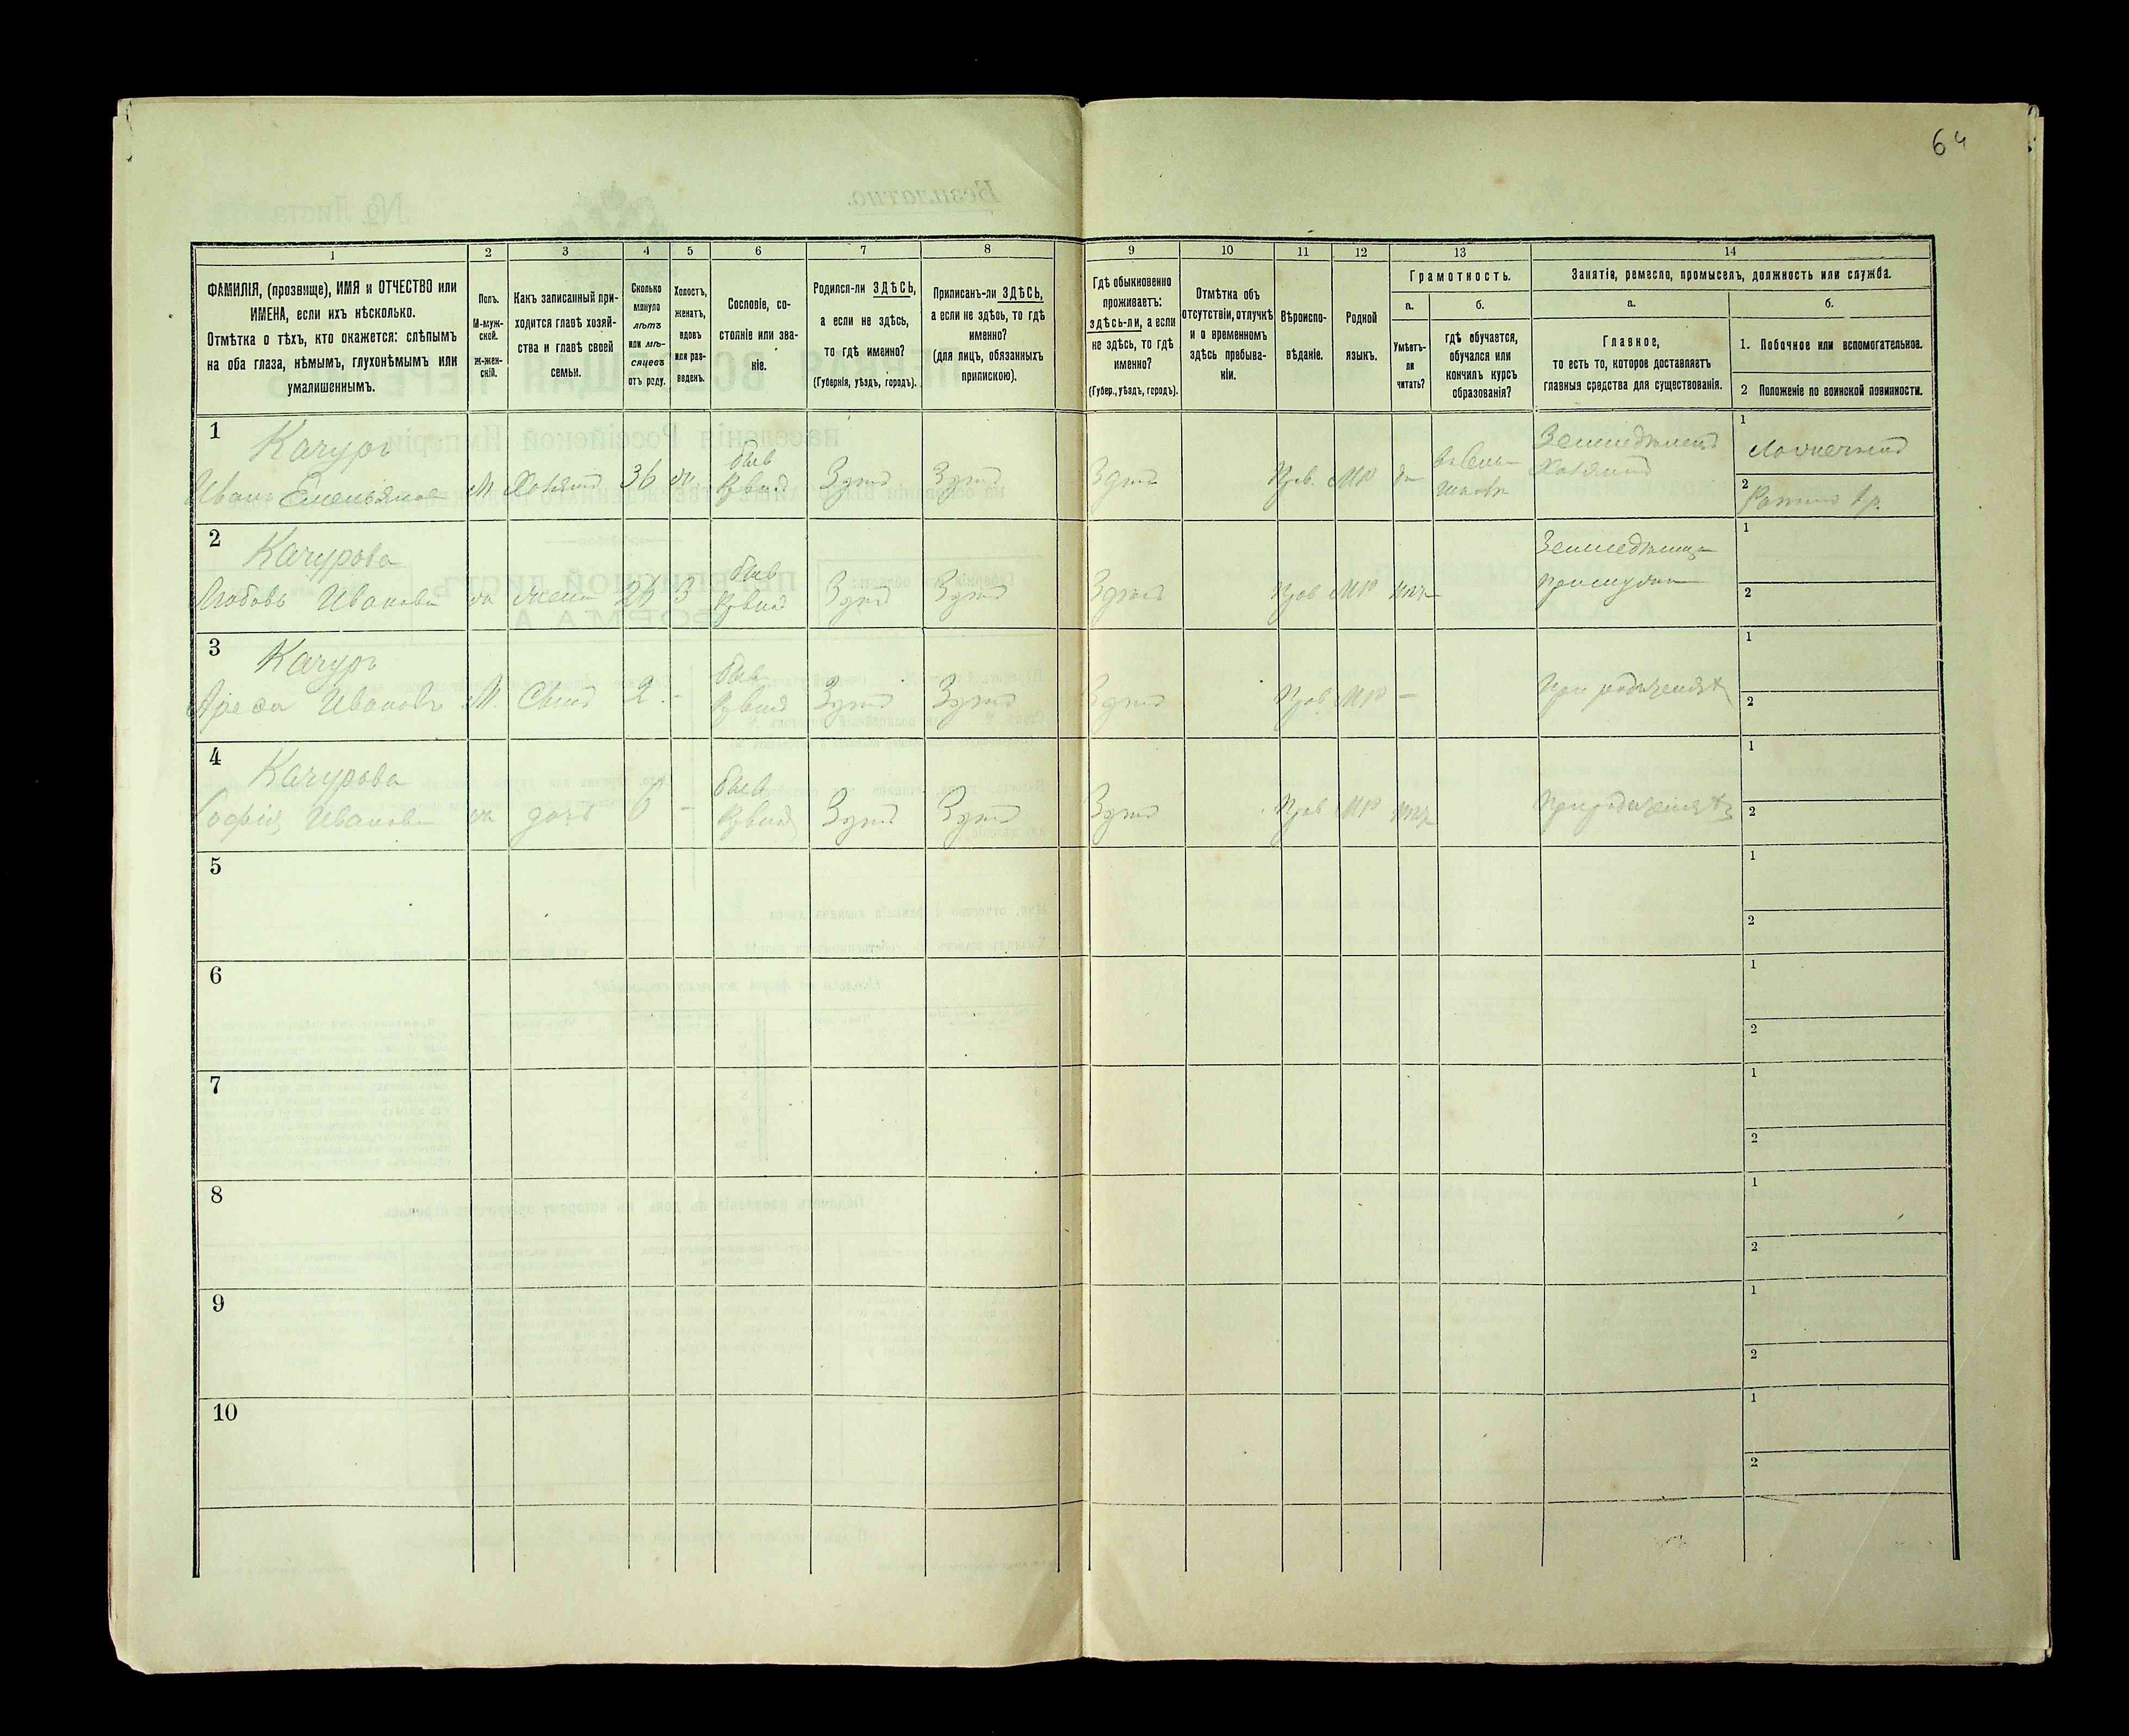 64
1
2
3
4
5
6
7
8
9
10
11
12
13
14
ФАМИЛІЯ, (прозвище), ИМЯ и ОТЧЕСТВО или
ИМЕНА, если ихъ нѣсколько.
Отмѣтка о тѣхъ, кто окажется: слѣпымъ
на оба глаза, нѣмымъ, глухонѣмымъ или
умалишеннымъ.
Полъ.
М-муж-
ской.
Ж-жен-
скій.
Какъ записанный при-
ходится главѣ хозяй-
ства и главѣ своей
семьи.
Сколько
минуло
лѣтъ
или мѣ-
сяцевъ
отъ роду.
Холостъ,
женатъ,
вдовъ
или раз-
веденъ.
Сословіе, со-
стояніе или зва-
ніе.
Родился-ли ЗДѢСЬ,
а если не здѣсь,
то гдѣ именно?
(Губернія, уѣздъ, городъ).
Приписанъ-ли ЗДѢСЬ,
а если не здѣсь, то гдѣ
именно?
(для лицъ, обязанныхъ
припискою).
Гдѣ обыкновенно
проживаетъ:
здѣсь-ли, а если
не здѣсь, то гдѣ
именно?
(Губер., уѣздъ, городъ).
Отмѣтка объ
отсутствіи, отлучкѣ
и о временномъ
здѣсь пребыва-
ніи.
Вѣроиспо-
вѣданіе.
Родной
языкъ.
Грамотность.
а.
Умѣетъ-
ли
читать?
б.
гдѣ обучается,
обучался или
кончилъ курсъ
образованія?
Занятія, ремесло, промыселъ, должность или служба.
а.
Главное,
то есть то, которое доставляетъ
главныя средства для существованія.
б.
1. Побочное или вспомогательное.
2 Положеніе по воинской повинности.
1
Качуръ
Иванъ Емельянов М Хозяинъ 36 ж. быв Здѣсь Здѣсь Здѣсь Прав. МР да
Земледѣлецъ
Хозяинъ
1
2
2
Качурова
Любовь Иванова ж жена З быв Здѣсь Здѣсь Здѣсь Прав МР нѣтъ
1
2
3
Качуръ
Ивановъ М. Сынъ 2. - быв Здѣсь Здѣсь Здѣсь Прав МР -
При родителяхъ
1
2
4
Качурова
Софія Иванова ж дочь 6 - быв Здѣсь Здѣсь Здѣсь Прав МР нѣтъ
При родителяхъ
1
2
5
1
2
6
1
2
7
1
2
8
1
2
9
1
2
10
1
2